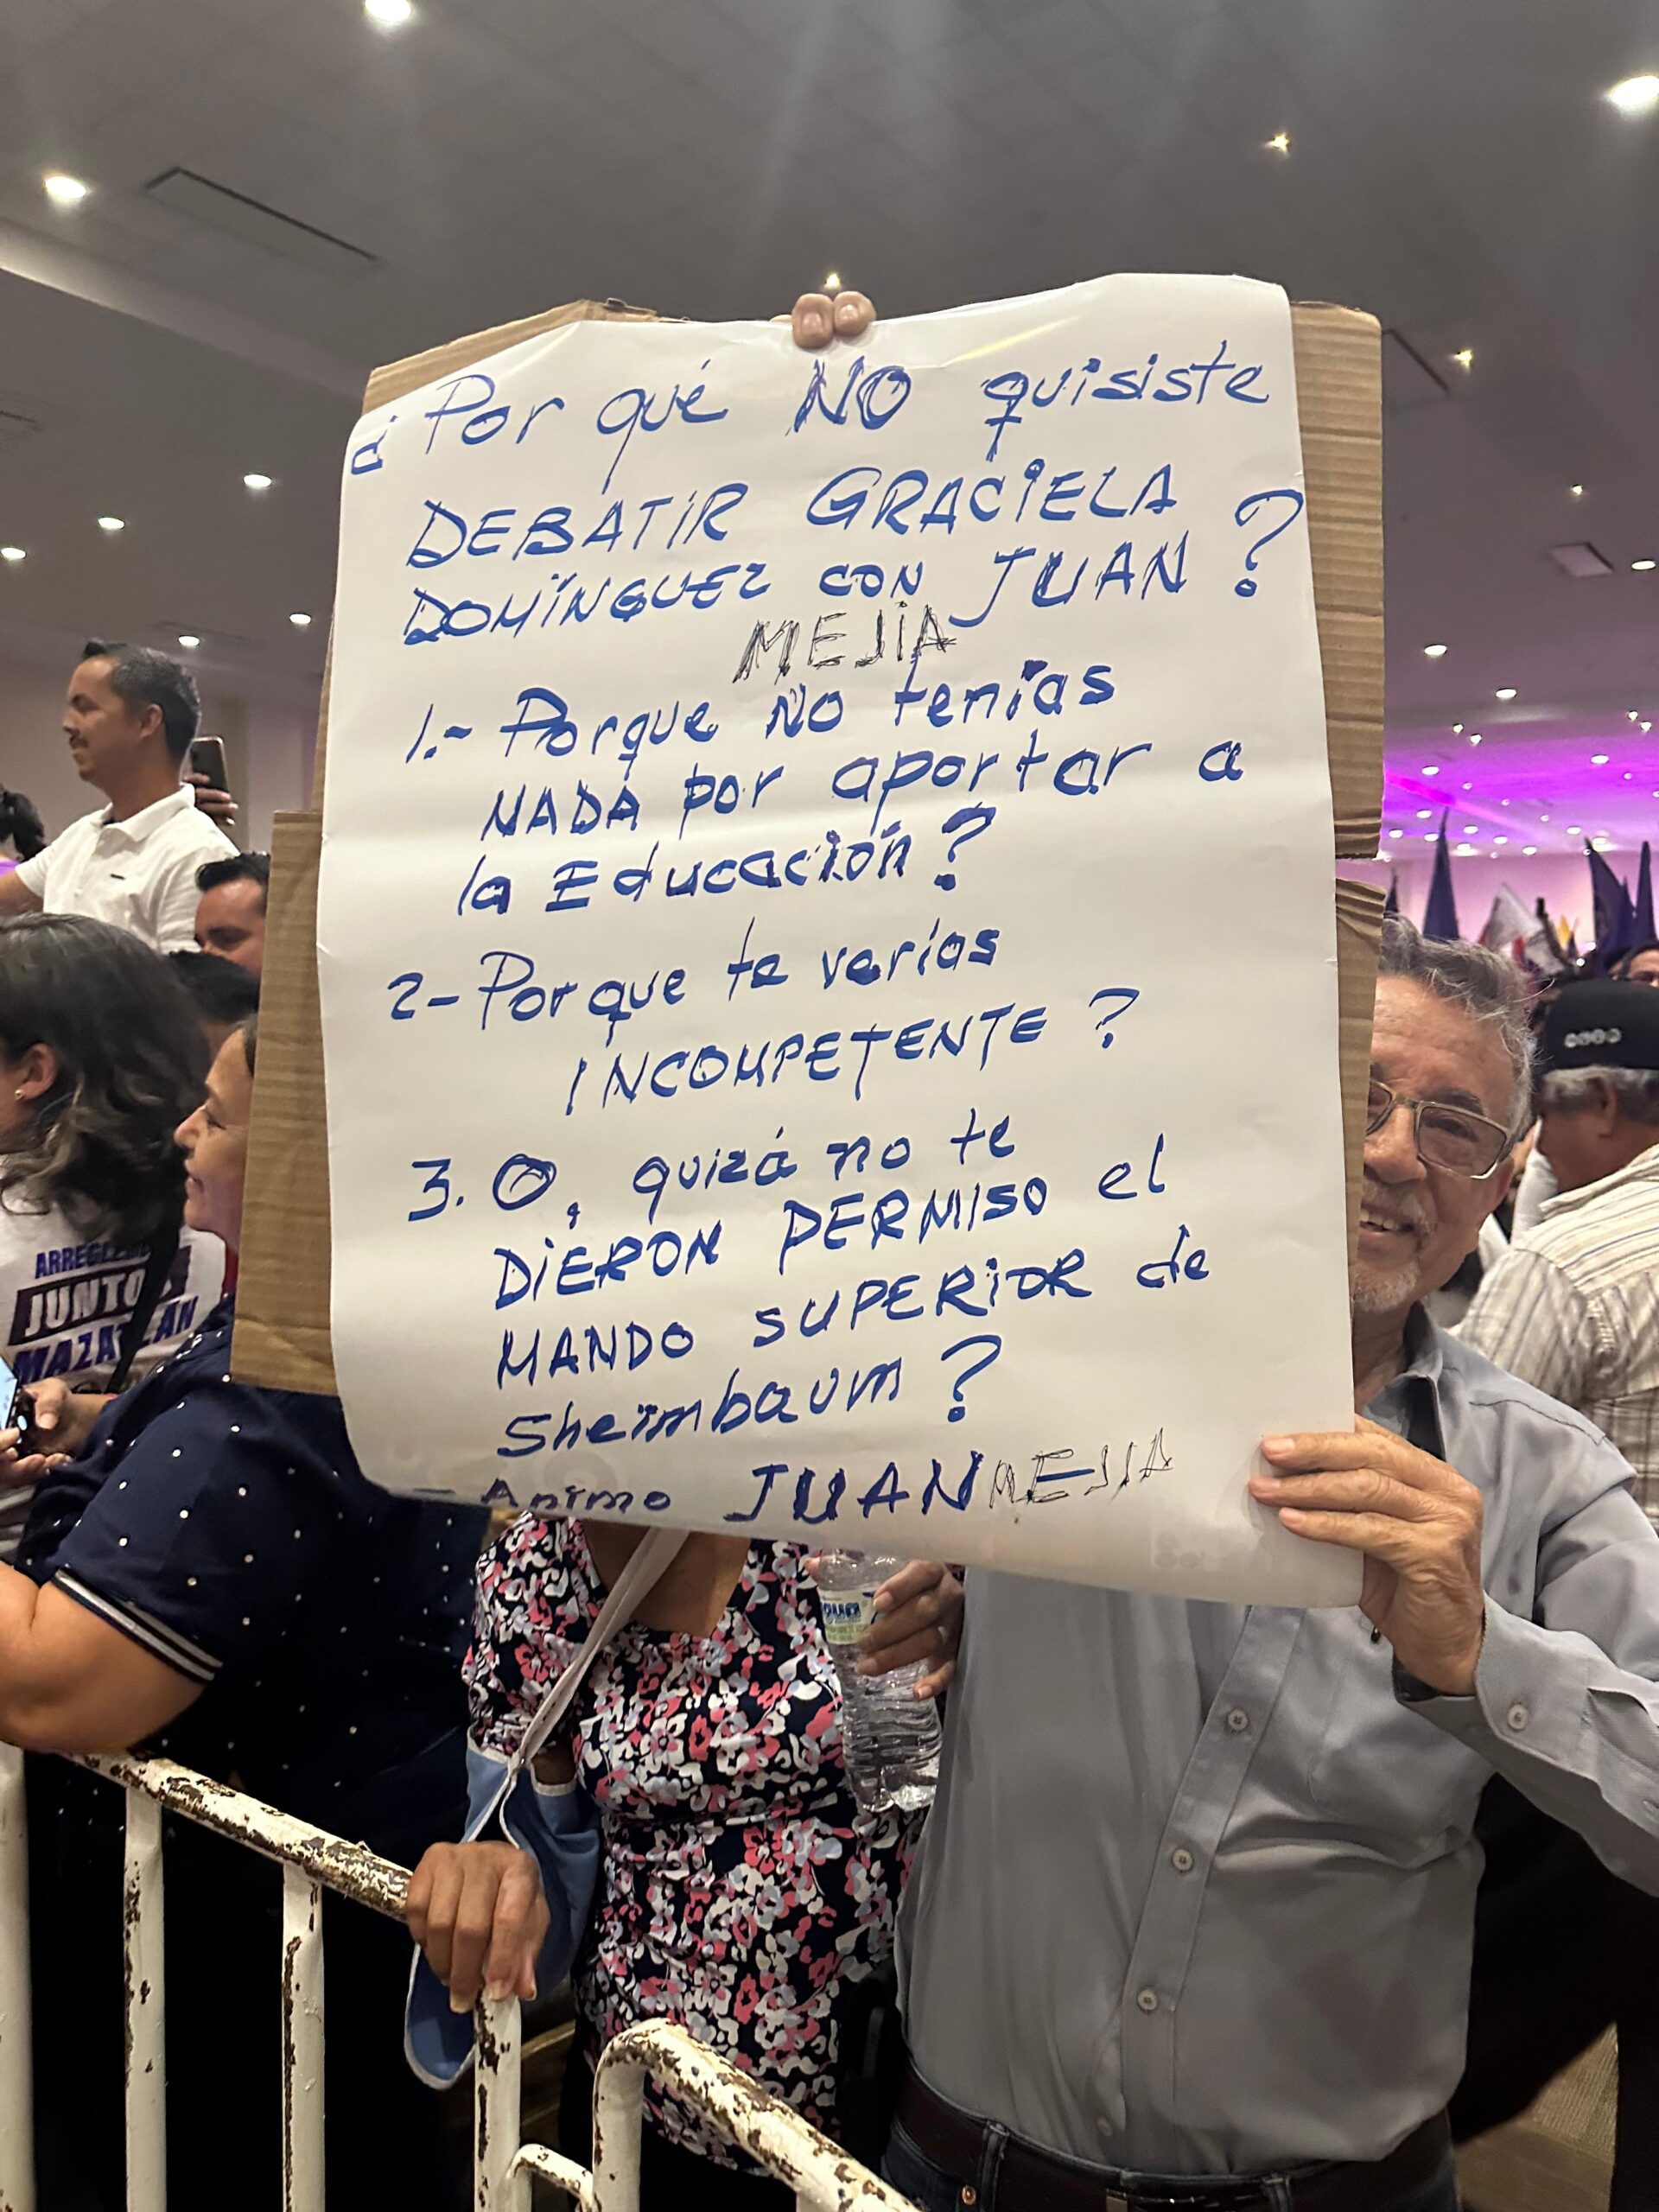 ¿Por qué NO quisiste
DEBATIR GRACIELA
DOMÍNGUEZ CON JUAN?
MEJIA
1.- Porque NO tenías
NADA por aportar a
la Educación?
2- Porque te verías
INCOMPETENTE?
3. O, quizá no te
DIERON PERMISO el
MANDO SUPERIOR de
Sheimbaum?
- Animo JUAN MEJIA
JUNTOS
MAZATLÁN